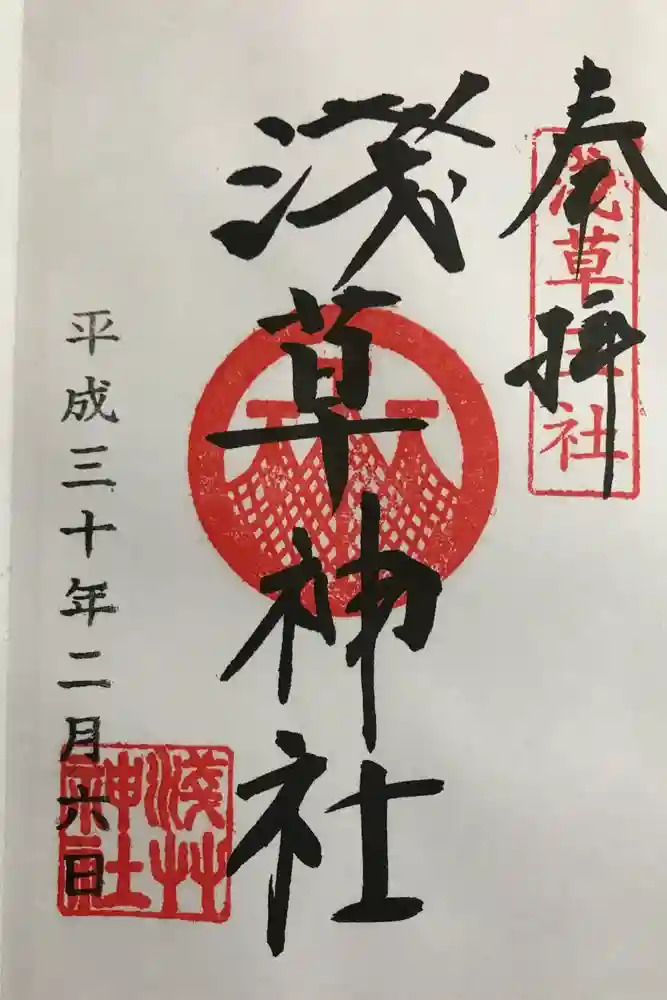 奉拝
淺草三社
淺草神社
平成三十年二月六日
淺草神社